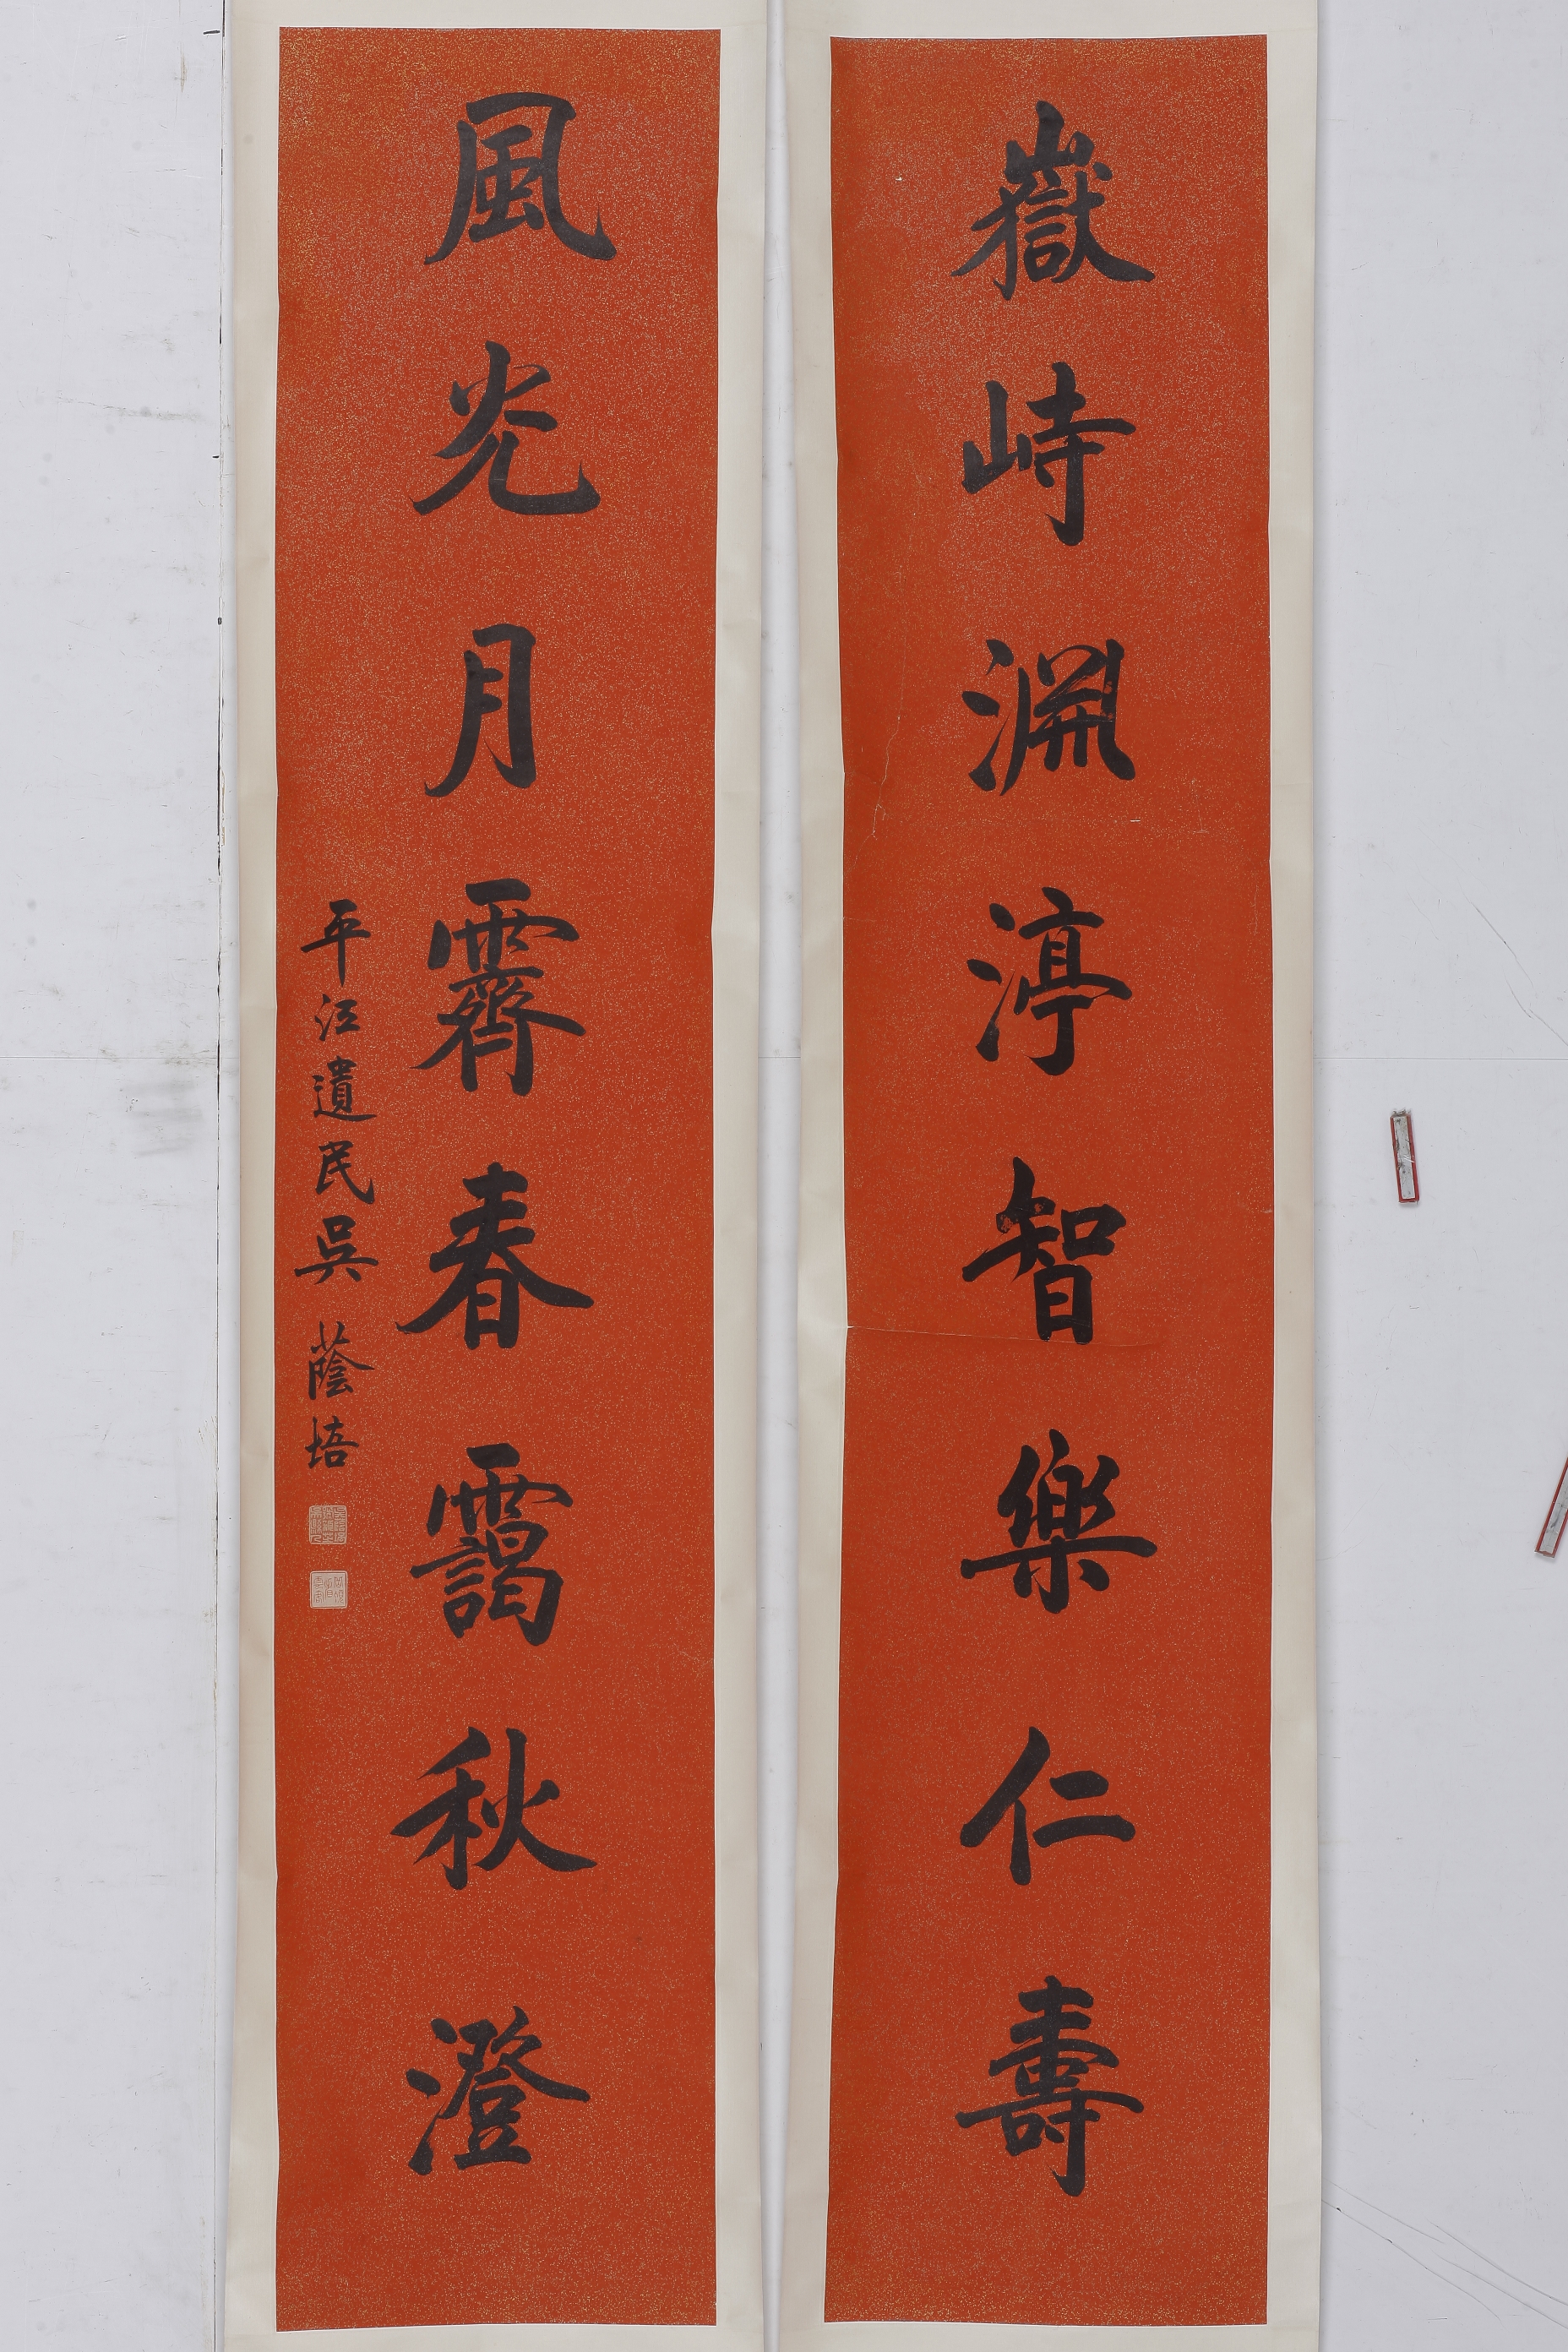 嶽峙淵渟智樂仁壽
風光月霽春靄秋澄
平江遺民吳蔭培